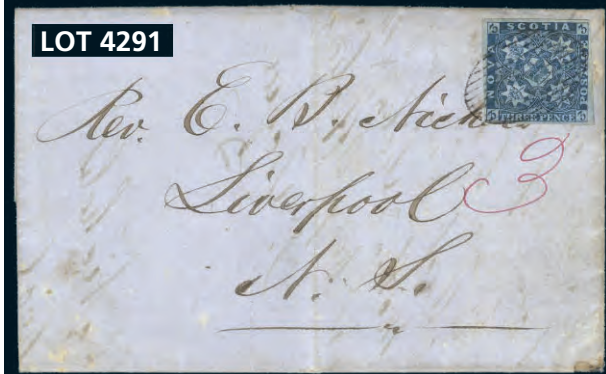 LOT 4291
SCOTIA
THREE PENCE
Rev. E. B.
Liverpool
3
N. S.